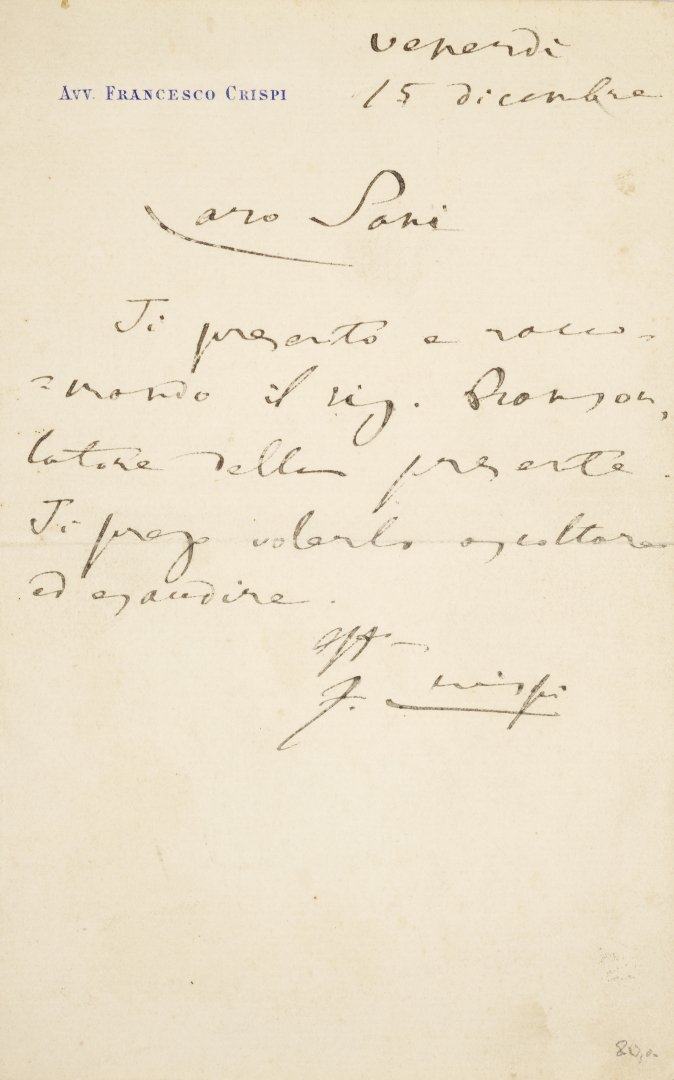 venerdì
AVV. FRANCESCO CRISPI
15 dicembre
Caro Sani
Ti presento e racco-
=mando il sig. Branson,
latore della presente.
Ti prego volerlo ascoltare
ed esaudire.
aff
F. Crispi
80,